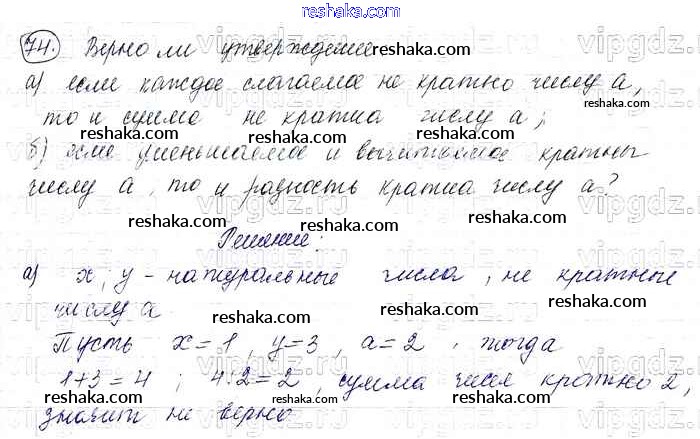 reshaka.com
74. Верно ли утверждение reshaka.com
а) если каждое слагаемое не кратно числу а,
то и сумма не кратна числу а;
reshaka.com reshaka.com reshaka.com
б) если уменьшаемое и вычитаемое кратны
числу а, то и разность кратна числу а?
reshaka.com reshaka.com
Решение:
а) х, у - натуральные числа, не кратные
числу а
reshaka.com reshaka.com
Пусть х=1, у=3, а=2, тогда
1+3=4; 4:2=2, сумма чисел кратно 2,
значит не верно
reshaka.com reshaka.com